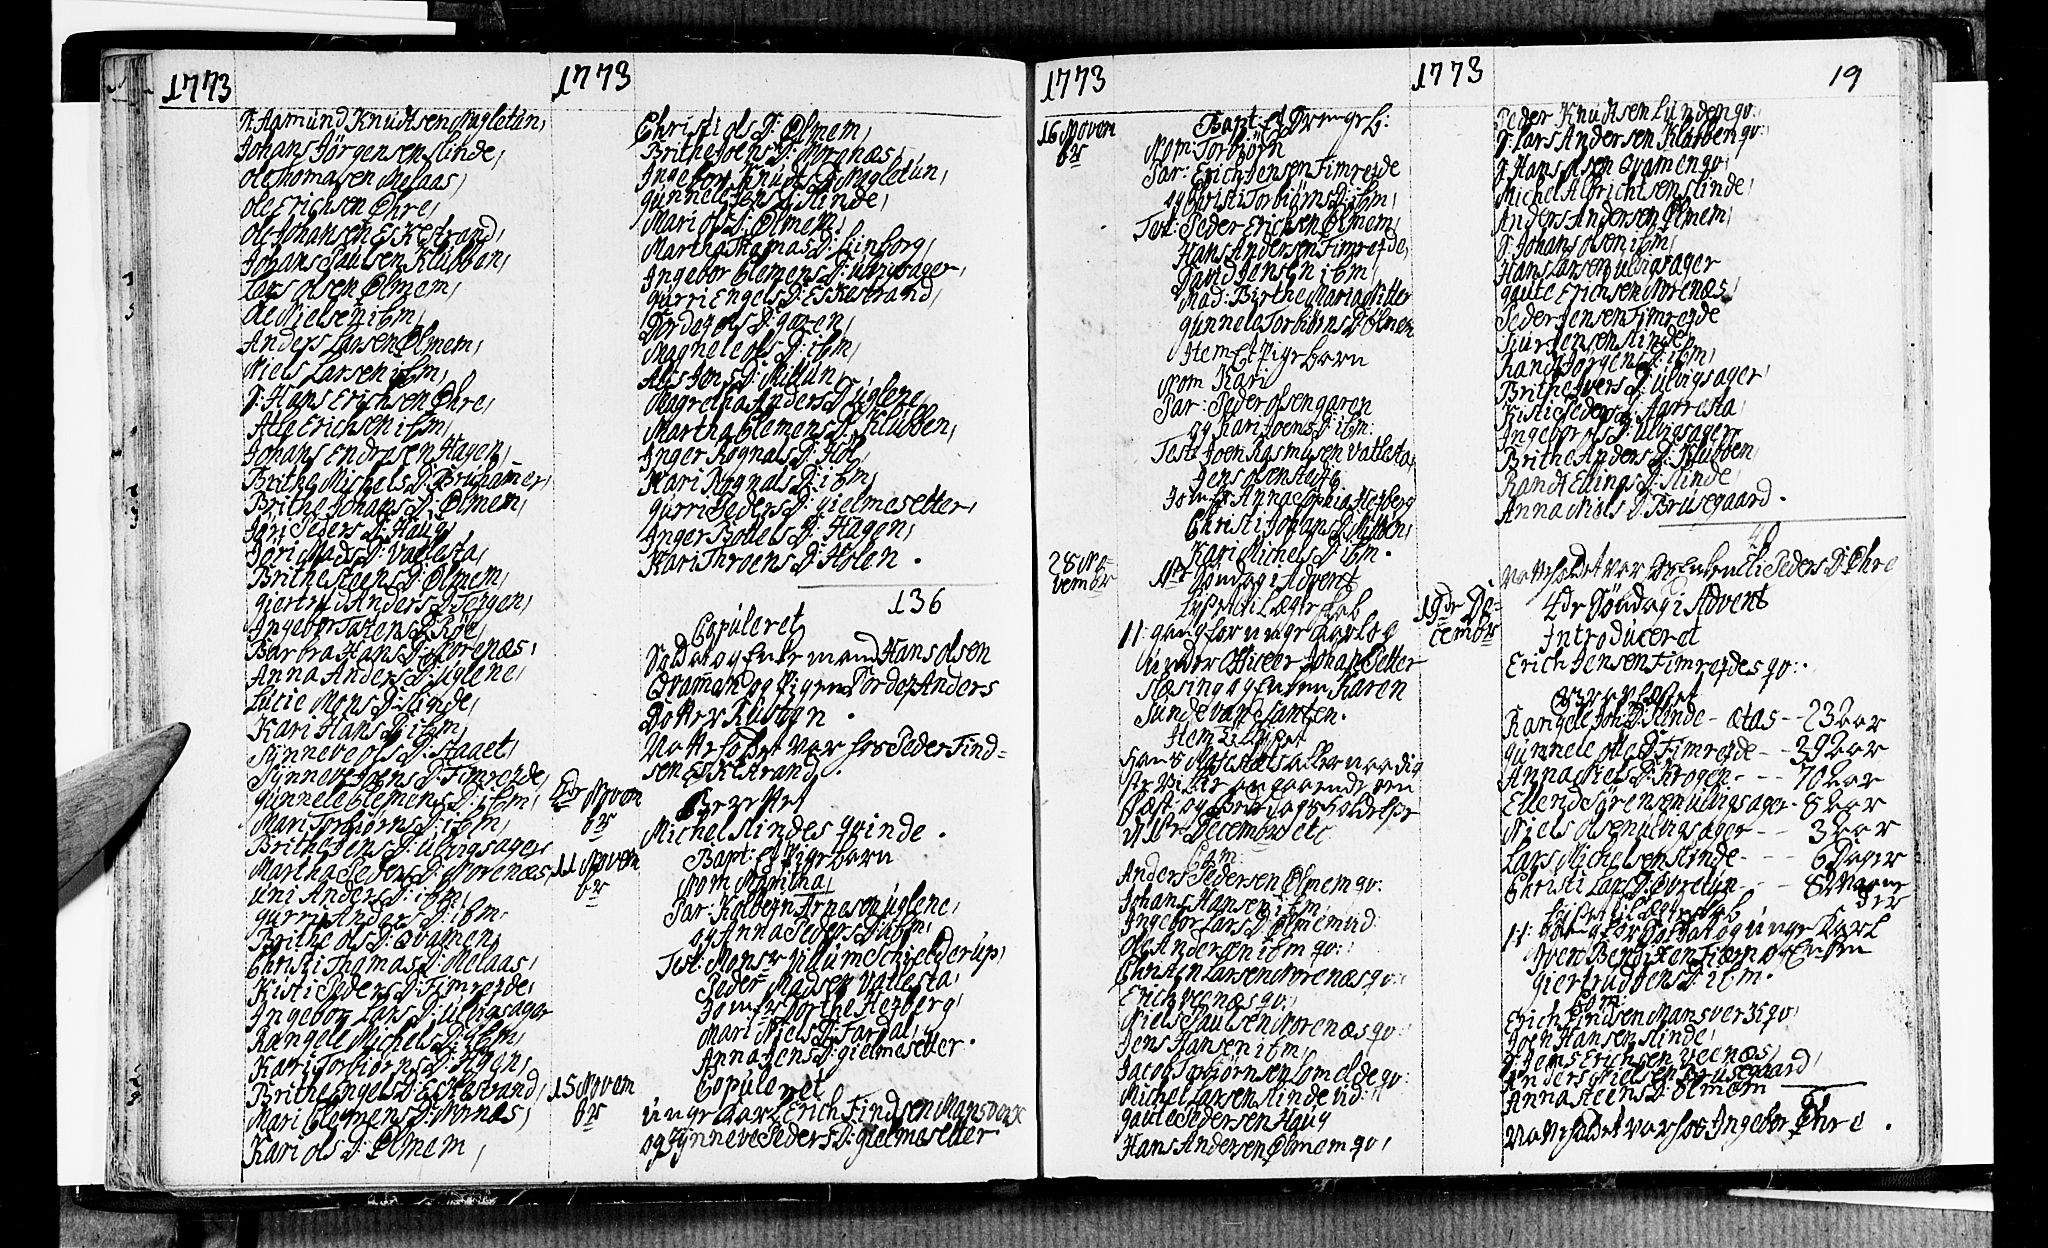 1773
P. Aamund Knudtsen Nagletun,
Johans Jørgensen Slinde,
Ole Thomasen Melaas,
Ole Erichsen Øhre,
Ole Johansen Eskestrand,
Johans Paulsen Klubben,
Lars Olsen Ølmem,
Ole Nielsen ibm,
Anders Larsen Ølmem,
Niels Larsen ibm,
P: Hans Erichsen Øhre,
Atle Erichsen ibm,
Johans Endresen Hagen,
Brithe Michels D: Bruhammer,
Brithe Johans D: Ølmem,
Jøri Peders D: Haug,
Jøri Mads D: Vallesta,
Brithe Steens D: Ølmem,
Giertrud Anders D:
Ingebor D: Røe,
Barbra Hans D: Norenæs,
Anna Anders D: Uglene,
Lucie Mons D: Slinde,
Kari Hans D: ibm,
Synneve Ols D: Haaet,
Synneve Joens D: Fimreide,
Gunnele Clemens D: ibm,
Mari Torbiørns D: ibm,
Brithe Jens D: Ulvigsager
Martha Peders D: Norenæs,
Uni Anders D: ibm,
Gurri Anders D: ibm,
Brithe Ols D: Qvamen,
Christi Thomas D: Melaas,
Kisti Peders D: Fimreide,
Ingebor Lars D: Ulvigsager
Rangele Michels D: ibm,
Kari Torbiørns D: Hagen,
Brithe Engels D: Eskestrand,
Mari Clemens D: Nornæs,
Kari Ols D: Ølmem,
1773
Christi Ols D: Ølmem,
Brithe Joens D: Norenæs,
Ingebor Knuts D: Nagletun,
Gunnele Jens D: Slinde,
Mari Ols D: Ølmem,
Martha Thomas D: Linborg,
Ingebor Clemens D: Ulvigsager,
Gurri Engels D: Eskestrand,
Dorde Ols D: Garen,
Magnele Ols D: ibm,
Alis Jens D: Midtun,
Magretha Anders D: Uglene,
Martha Clemens D: Klubben,
Inger Rognals D: Hol,
Kari Rognals D: ibm,
Gurri Peders D: Gielmesetter,
Inger Botels D: Hagen,
Kari Throens D: Holen.
136
Copuleret
Soldat og Enkemand Hans Olsen
Qvamman og Pigen Torde Anders
Dotter Rusten.
Natteholdet var hos Peder Find=
sen Eskestrand.
2dr Novem
br
Berettet
Michel Slindes Qvinde.
11 Novem
br
Bapt: et Pigebarn
Nom Maritha,
Par: Kolbern Arneson Uglene,
og Anna Peders D: ibm,
Test: Monsr Villum Schielderup,
Peder Madsen Vallesta,
Jomfr Dorthe Hertzberg,
Mari Niels D: Fardal,
Anna Jens D: Gielmesetter.
15 Novem
br
Copuleret
Unge Karl Erich Findsen Mansverk
og Synneve Peders D: Gielmesetter
1773
16 Novem
br
Bapt. et Drengeb:
Nom: Torbiørn
Par: Erich Jensen Fimreide
og Christi Torbiørns D: ibm,
Test: Peder Erichsen Ølmem,
Hans Andersen Fimreide,
David Jensen ibm,
Mad: Birthe Maria Nitter
Gunnele Torbiørns D: Ølmem
Item Et Pigebarn
Nom Kari
Par: Peder Olsen Garen
og Kari Joens D: ibm:
Test: Joen Rasmusen Vallesta,
Jens Olsen
Jomfr Anna Sophia Hertzberg
Christi Johans D: Midtun,
Kari Michels D: ibm.
28 No-
vembr
1ste Søndag i Advent
Lyst til Ægteskab
11: gang for unge Karl og
Under Officer Johan Petter
Hæsing og Enken Karen
Sunde van Santen.
Item
Hans Majestæts allernaadig
angaaende
Fæst og
d 11te Decembr etc
Com:
Anders Pedersen Ølmem qv:
Johans Hansen ibm,
Ingebor Lars D: Ølmem vid:
Ole Andersen ibm qv:
Christen Larsen Norenæs qv:
Erich Veenæs qv:
Niels Paulsen Norenæs qv:
Jens Hansen ibm,
Jacob Torbiørnsen Lomelde qv:
Michel Larsen Slinde vid:
Gaute Pedersen Haug
Hans Andersen Ølmem qv,
1773
19
Peder Knudtsen Lunden qv:
P: Lars Andersen Klubben qv:
P: Hans Olsen Qvamen qv:
Michel Albrichtsen Slinde,
Anders Andersen Ølmem,
P: Johans Olsen ibm,
Hans Larsen Ulvigsager
Gaute Erichsen Norenæs,
Peder Jensen Fimreide
Siur Jensen Slinde,
Randi Jørgens D: ibm,
Brithe Ivers D: Ulvigsager,
Kisti Peders D: Aarresta,
Ingebor Ols D: Ulvigsager,
Brithe Anders D: Klubben,
Randi Ellings D: Slinde,
Anna Niels D: Brusegaard.
Natteholdet var Enken Eli Peders D: Øhre
19de De-
cembr
4de Søndag i Advent
Introduceret
Erich Jensen Fimreides qv:.
Rangele Joh. D: Slinde - ætas - 23 aar
Gunnele Ole D: Fimreide - 39 aar
Anna Niels D: Krogen - 70 aar
Ellend Sørensen Ulvigsager - 8 aar
Niels Olsen Ulvigsager - 3 aar
Lars Michelsen Slinde - 6 Dager
Christi Lars D: Øvretun - 8 Maane
der
Lyst til Ægteskab
11: gang for Soldat og unge Karl
Iver Bendixen og Enken
Giertrud Joens D: ibm.
Com:
Erich Findsen Mansverk qv,
Joen Hansen Slinde,
P: Jens Erichsen Veenæs,
Anders Nielsen Brusegaard,
Anna Steens D: Ølmem
Natteholdet var hos Ingebor Øhre.